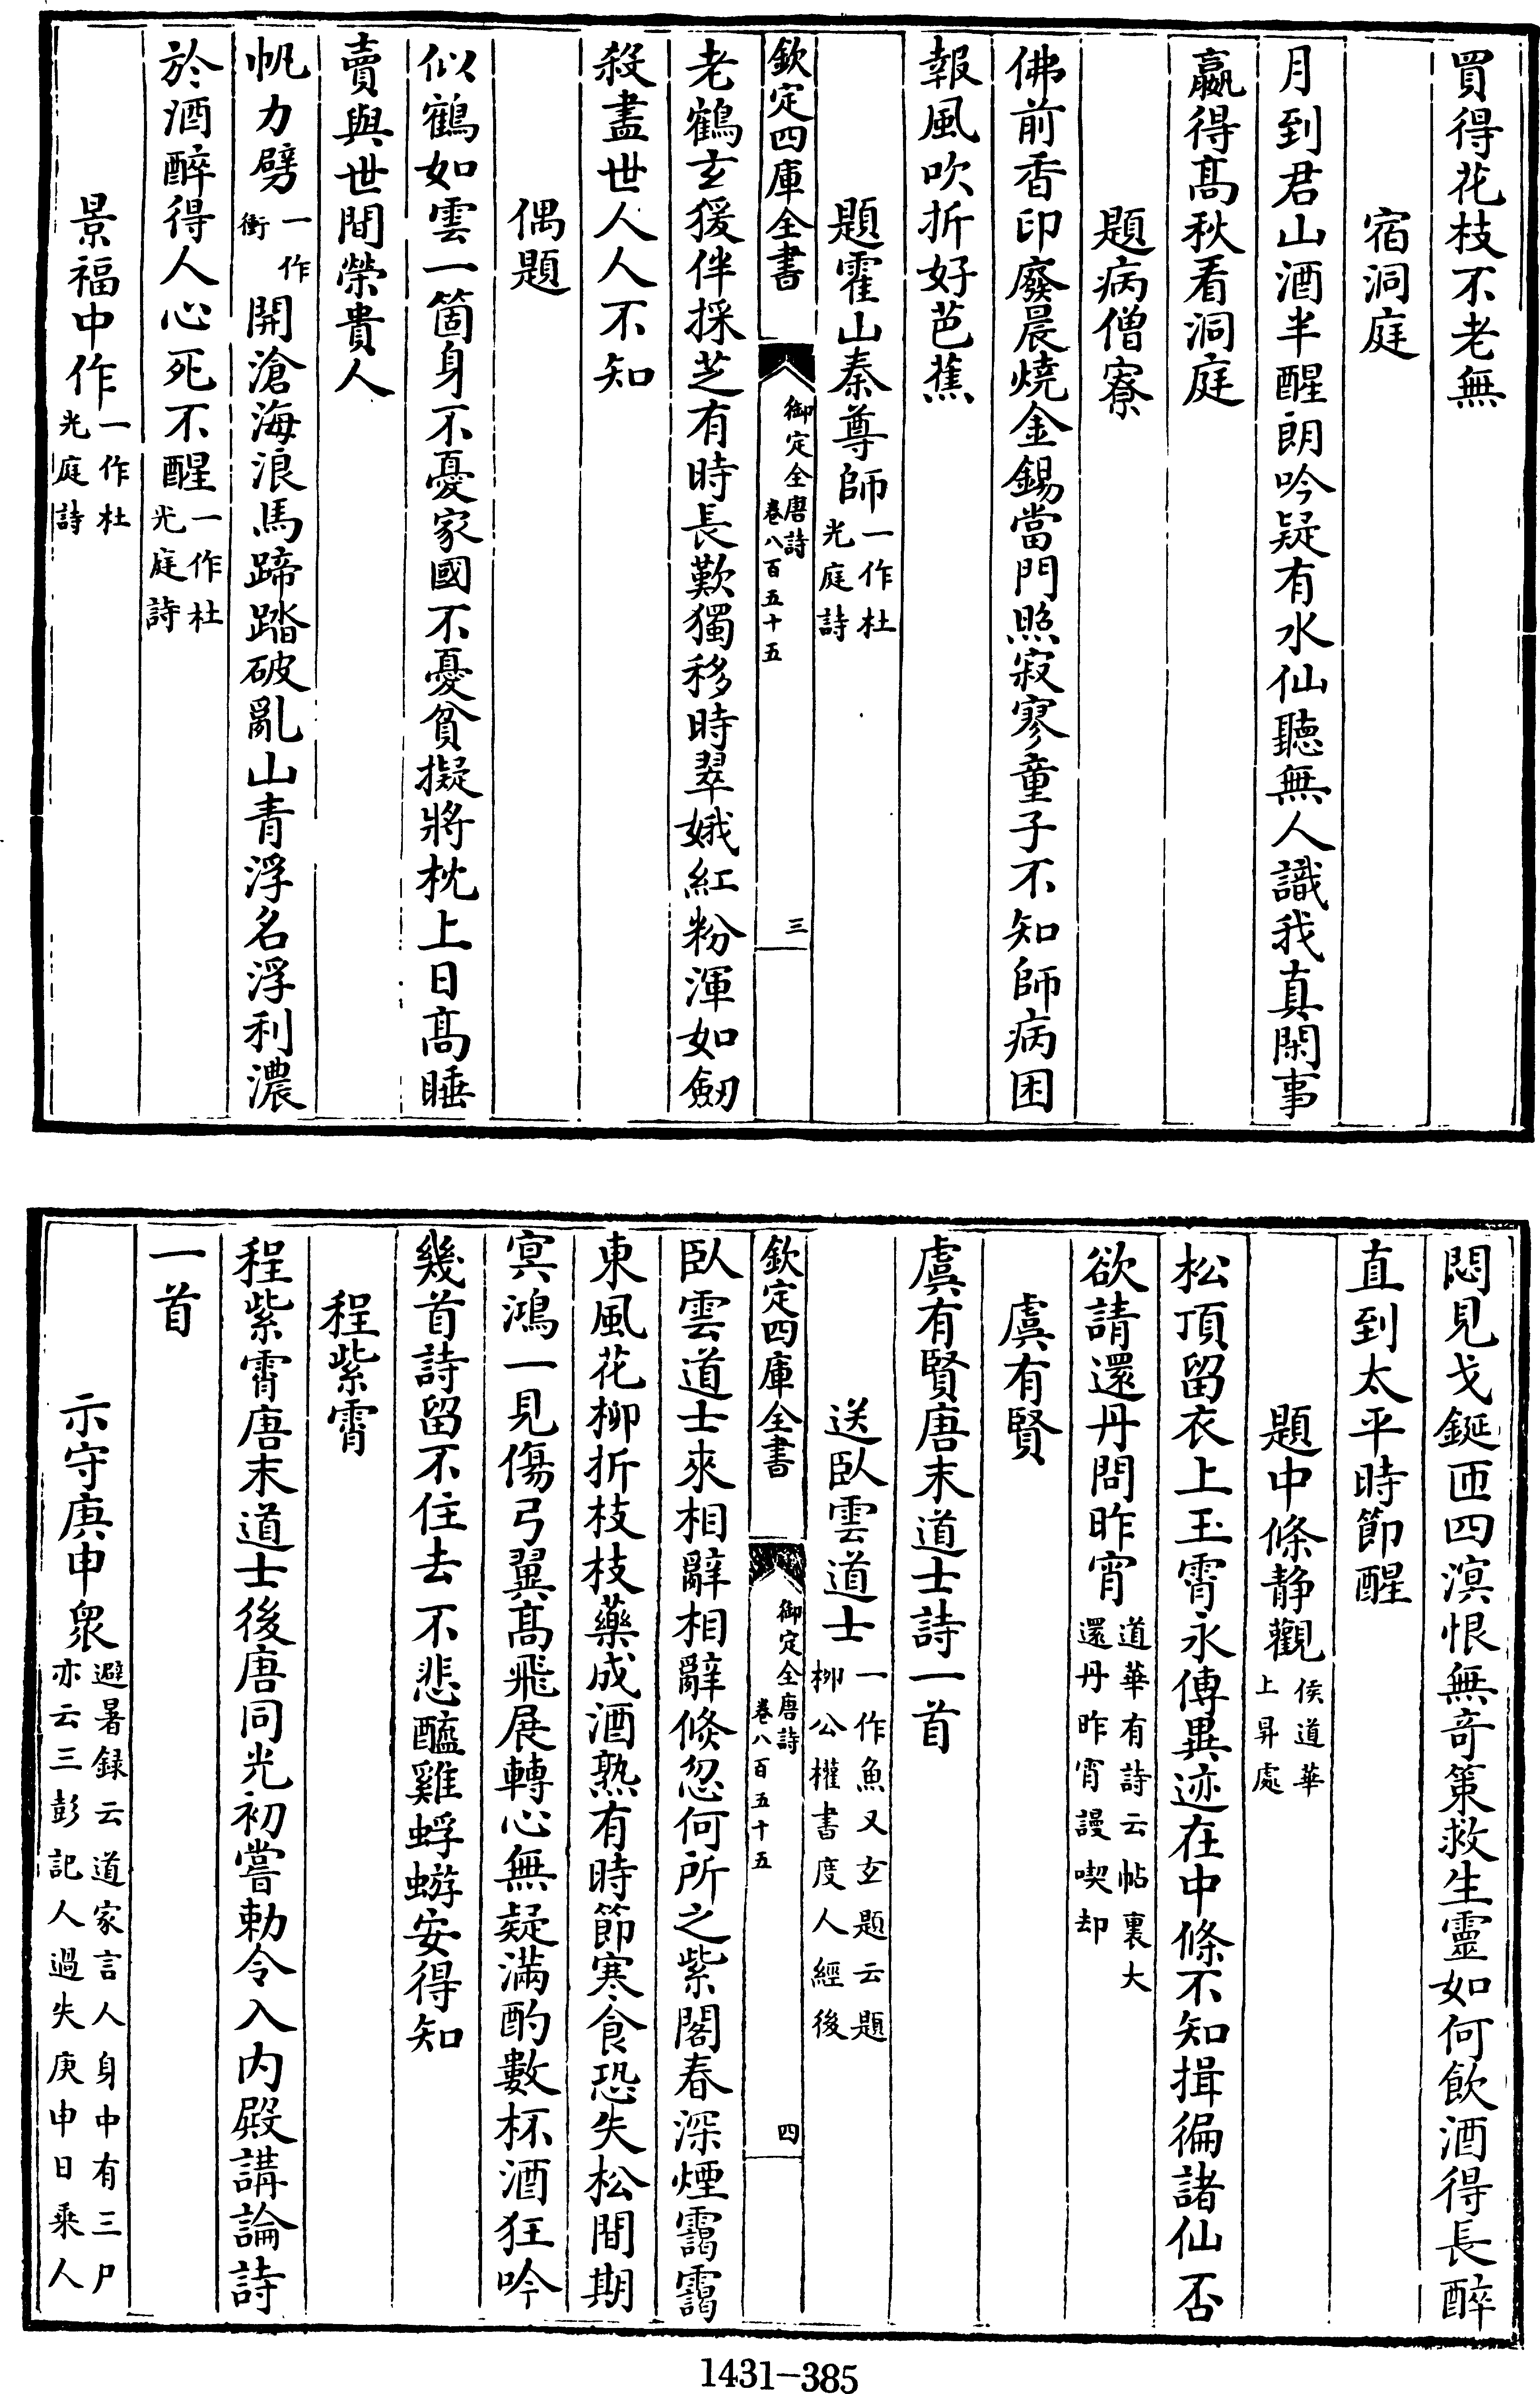 買得花枝不老無
宿洞庭
月到君山酒半醒朗吟疑有水仙聽無人識我真閑事
嬴得髙秋看洞庭
題病僧寮
佛前香印廢晨燒金錫當門照寂寥童子不知師病困
報風吹折好芭蕉
題霍山秦尊師一作杜光庭詩
欽定四庫全書
御定全唐詩
卷八百五十五
三
老鶴玄猨伴採芝有時長歎獨移時翠娥紅粉渾如劒
殺盡世人人不知
偶題
似鶴如雲一箇身不憂家國不憂貧擬將枕上日髙睡
賣與世間榮貴人
帆力劈一作衝開滄海浪馬蹄踏破亂山青浮名浮利濃
於酒醉得人心死不醒一作杜光庭詩
景福中作一作杜光庭詩
悶見戈鋋匝四溟恨無奇策救生靈如何飲酒得長醉
直到太平時節醒
題中條静觀侯道華上昇處
松頂留衣上玉霄永傳異迹在中條不知揖徧諸仙否
欲請還丹問昨宵道華有詩云帖裏大還丹昨宵謾喫却
虞有賢
虞有賢唐末道士詩一首
送臥雲道士一作魚又玄題云題柳公權書度人經後
欽定四庫全書
御定全唐詩
卷八百五十五
四
臥雲道士來相辭相辭倐忽何所之紫閣春深煙靄靄
東風花柳折枝枝藥成酒熟有時節寒食恐失松間期
冥鴻一見傷弓翼髙飛展轉心無疑滿酌數杯酒狂吟
幾首詩留不住去不悲醯雞蜉蝣安得知
程紫霄
程紫霄唐末道士後唐同光初嘗勅令入内殿講論詩
一首
示守庚申衆避暑録云道家言人身中有三尸亦云三彭記人過失庚申日乘人
1431-385